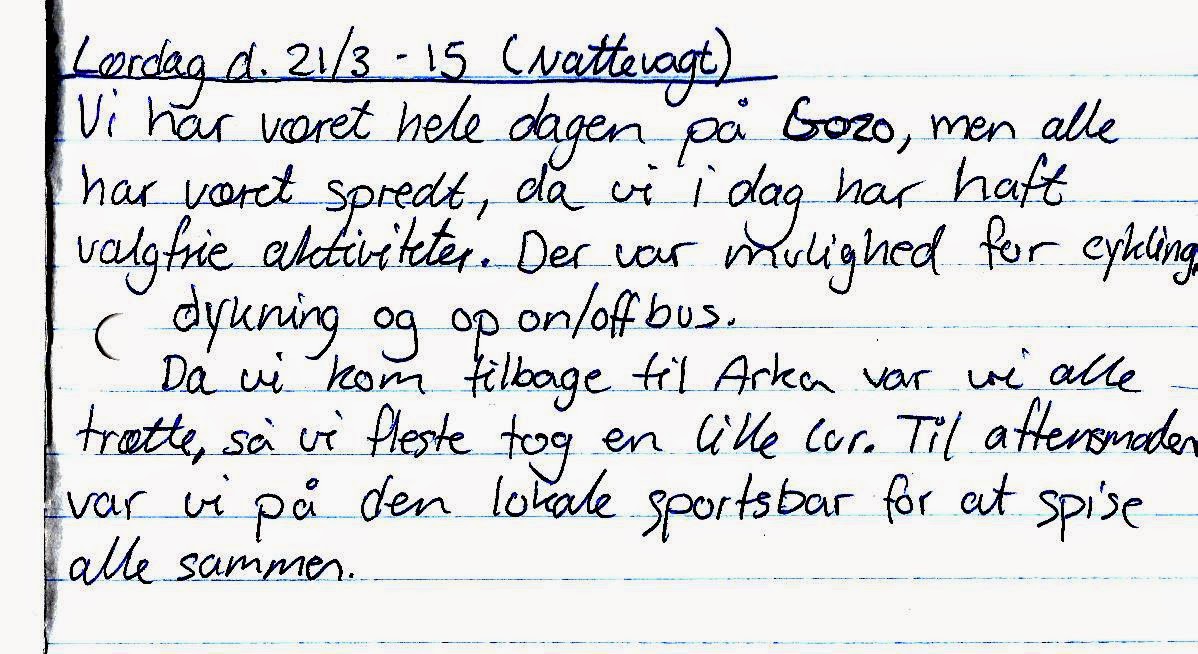 Lørdag d. 21/3 - 15 (Nattevagt)
Vi har været hele dagen på Gozo, men alle
har været spredt, da vi i dag har haft
valgfrie aktiviteter. Der var mulighed for cykling,
dykning og op on/off bus.
Da vi kom tilbage til Arka var vi alle
trætte, så vi fleste tog en lille lur. Til aftensmaden
var vi på den lokale sportsbar for at spise
alle sammen.